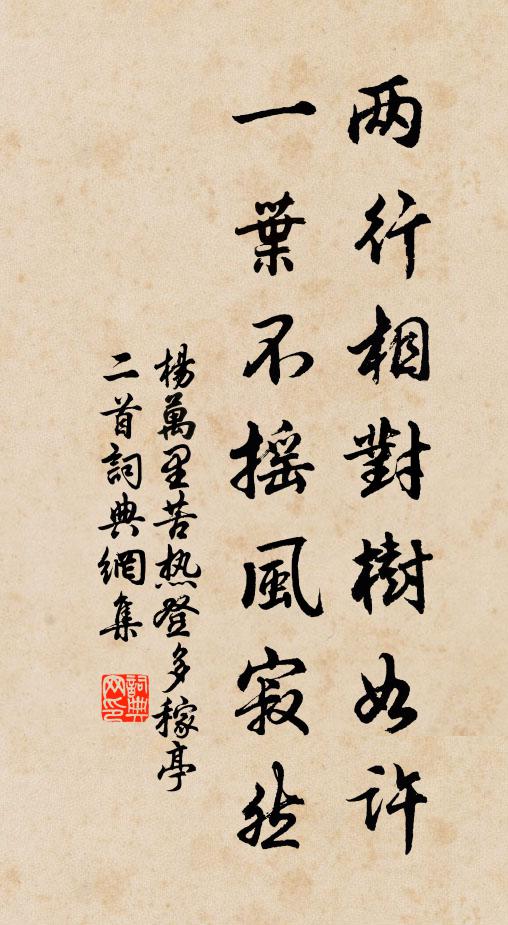 两行相對樹如許
一葉不摇風寂然
楊萬里苦热登多稼亭
二首詞典網集
詞典
网印